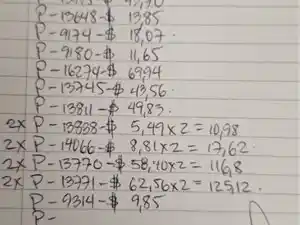 P-13648-$ 13,85
P-9174-$ 18,07.
P-9180-$ 11,65
P-16274-$ 69,94
P-13745-$ 43,56.
P-13811-$ 49,83.
2x P-13838-$ 5,49x2=10,98
2x P-14066-$ 8,81x2=17,62.
2x P-13770-$ 58,40x2=116,8
2x P-13771-$ 62,56x2=125,12.
P-9314-$ 9,85
P-